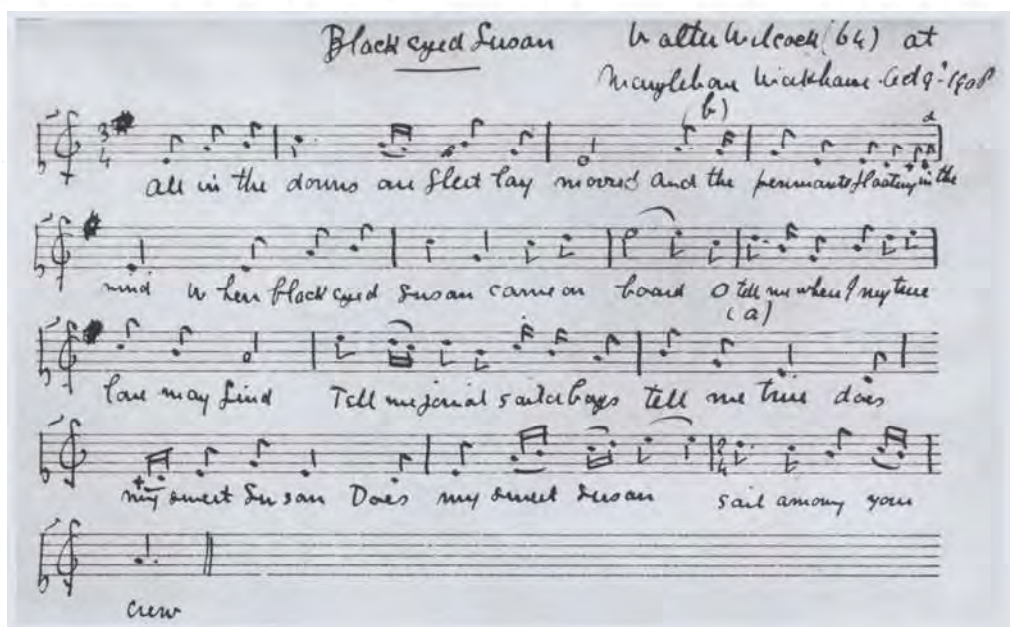 Black eyed Susan Walter Wilcock (64) at
Marylebone Workhouse. Aug 1908
(b)
3
4
d
all in the downs our fleet lay moored and the pennants floating in the
wind When black eyed Susan came on board O tell me where I my true
(a)
love may find Tell me jovial sailor boys tell me true does
2
4
my sweet Susan Does my sweet Susan sail among your
crew